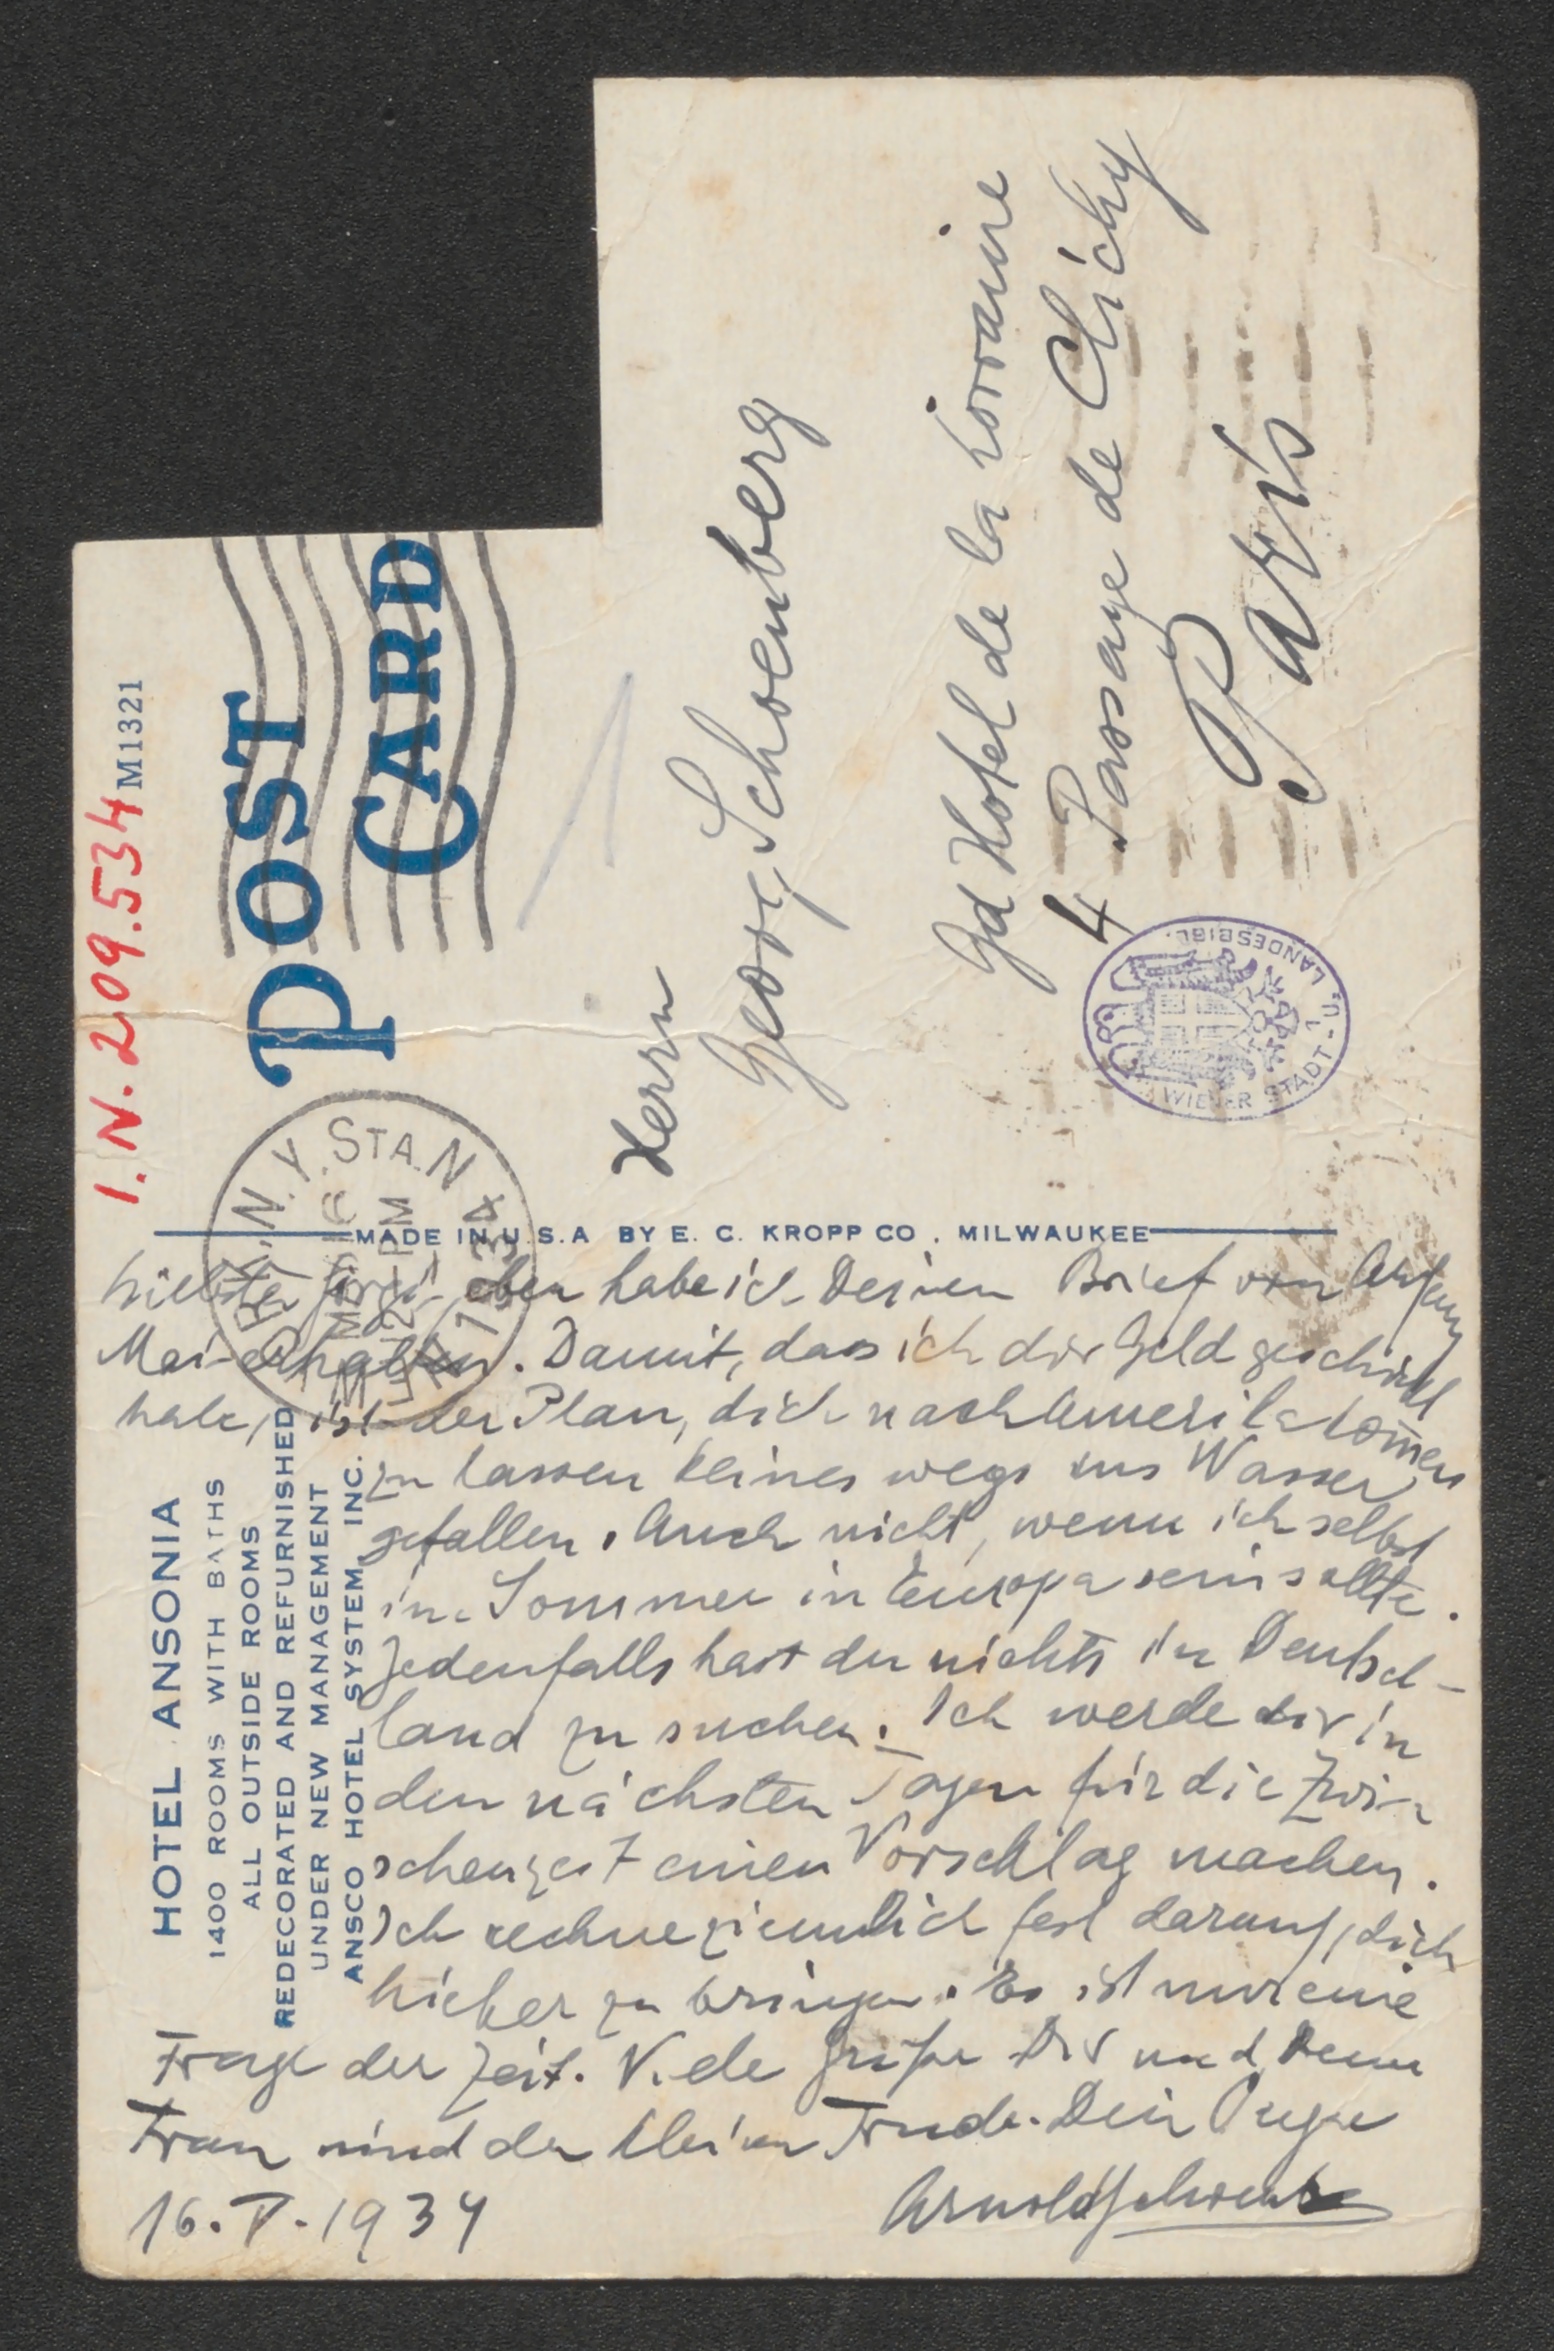 I.N. 209.534
M1321
POST CARD
N.Y. STA. N
MAY 16
12 PM
1934
Herrn
Georg Schoenberg
Gd Hotel de la Lorraine
4 Passage de Clichy
Paris
WIENER STADT- U. LANDESBIBL.
MADE IN U.S.A BY E. C. KROPP CO., MILWAUKEE
HOTEL ANSONIA
1400 ROOMS WITH BATHS
ALL OUTSIDE ROOMS
REDECORATED AND REFURNISHED
UNDER NEW MANAGEMENT
ANSCO HOTEL SYSTEM, INC.
Liebster Görgl- eben habe ich Deinen Brief von Anfang
Mai erhalten. Damit, dass ich dir Geld geschickt
habe, ist der Plan, dich nach Amerika kom̄en
zu lassen keineswegs ins Wasser
gefallen. Auch nicht, wenn ich selbst
im Sommer in Europa sein sollte.
Jedenfalls hast du nichts in Deutsch-
land zu suchen. Ich werde dir in
den nächsten Tagen für die Zwi-
schenzeit einen Vorschlag machen.
Ich rechne ziemlich fest darauf, dich
hieher zu bringen. Es ist nur eine
Frage der Zeit. Viele Grüße Dir und Deiner
Frau und der kleinen Trude. Dein Papa
16.V.1934
Arnold Schoenberg